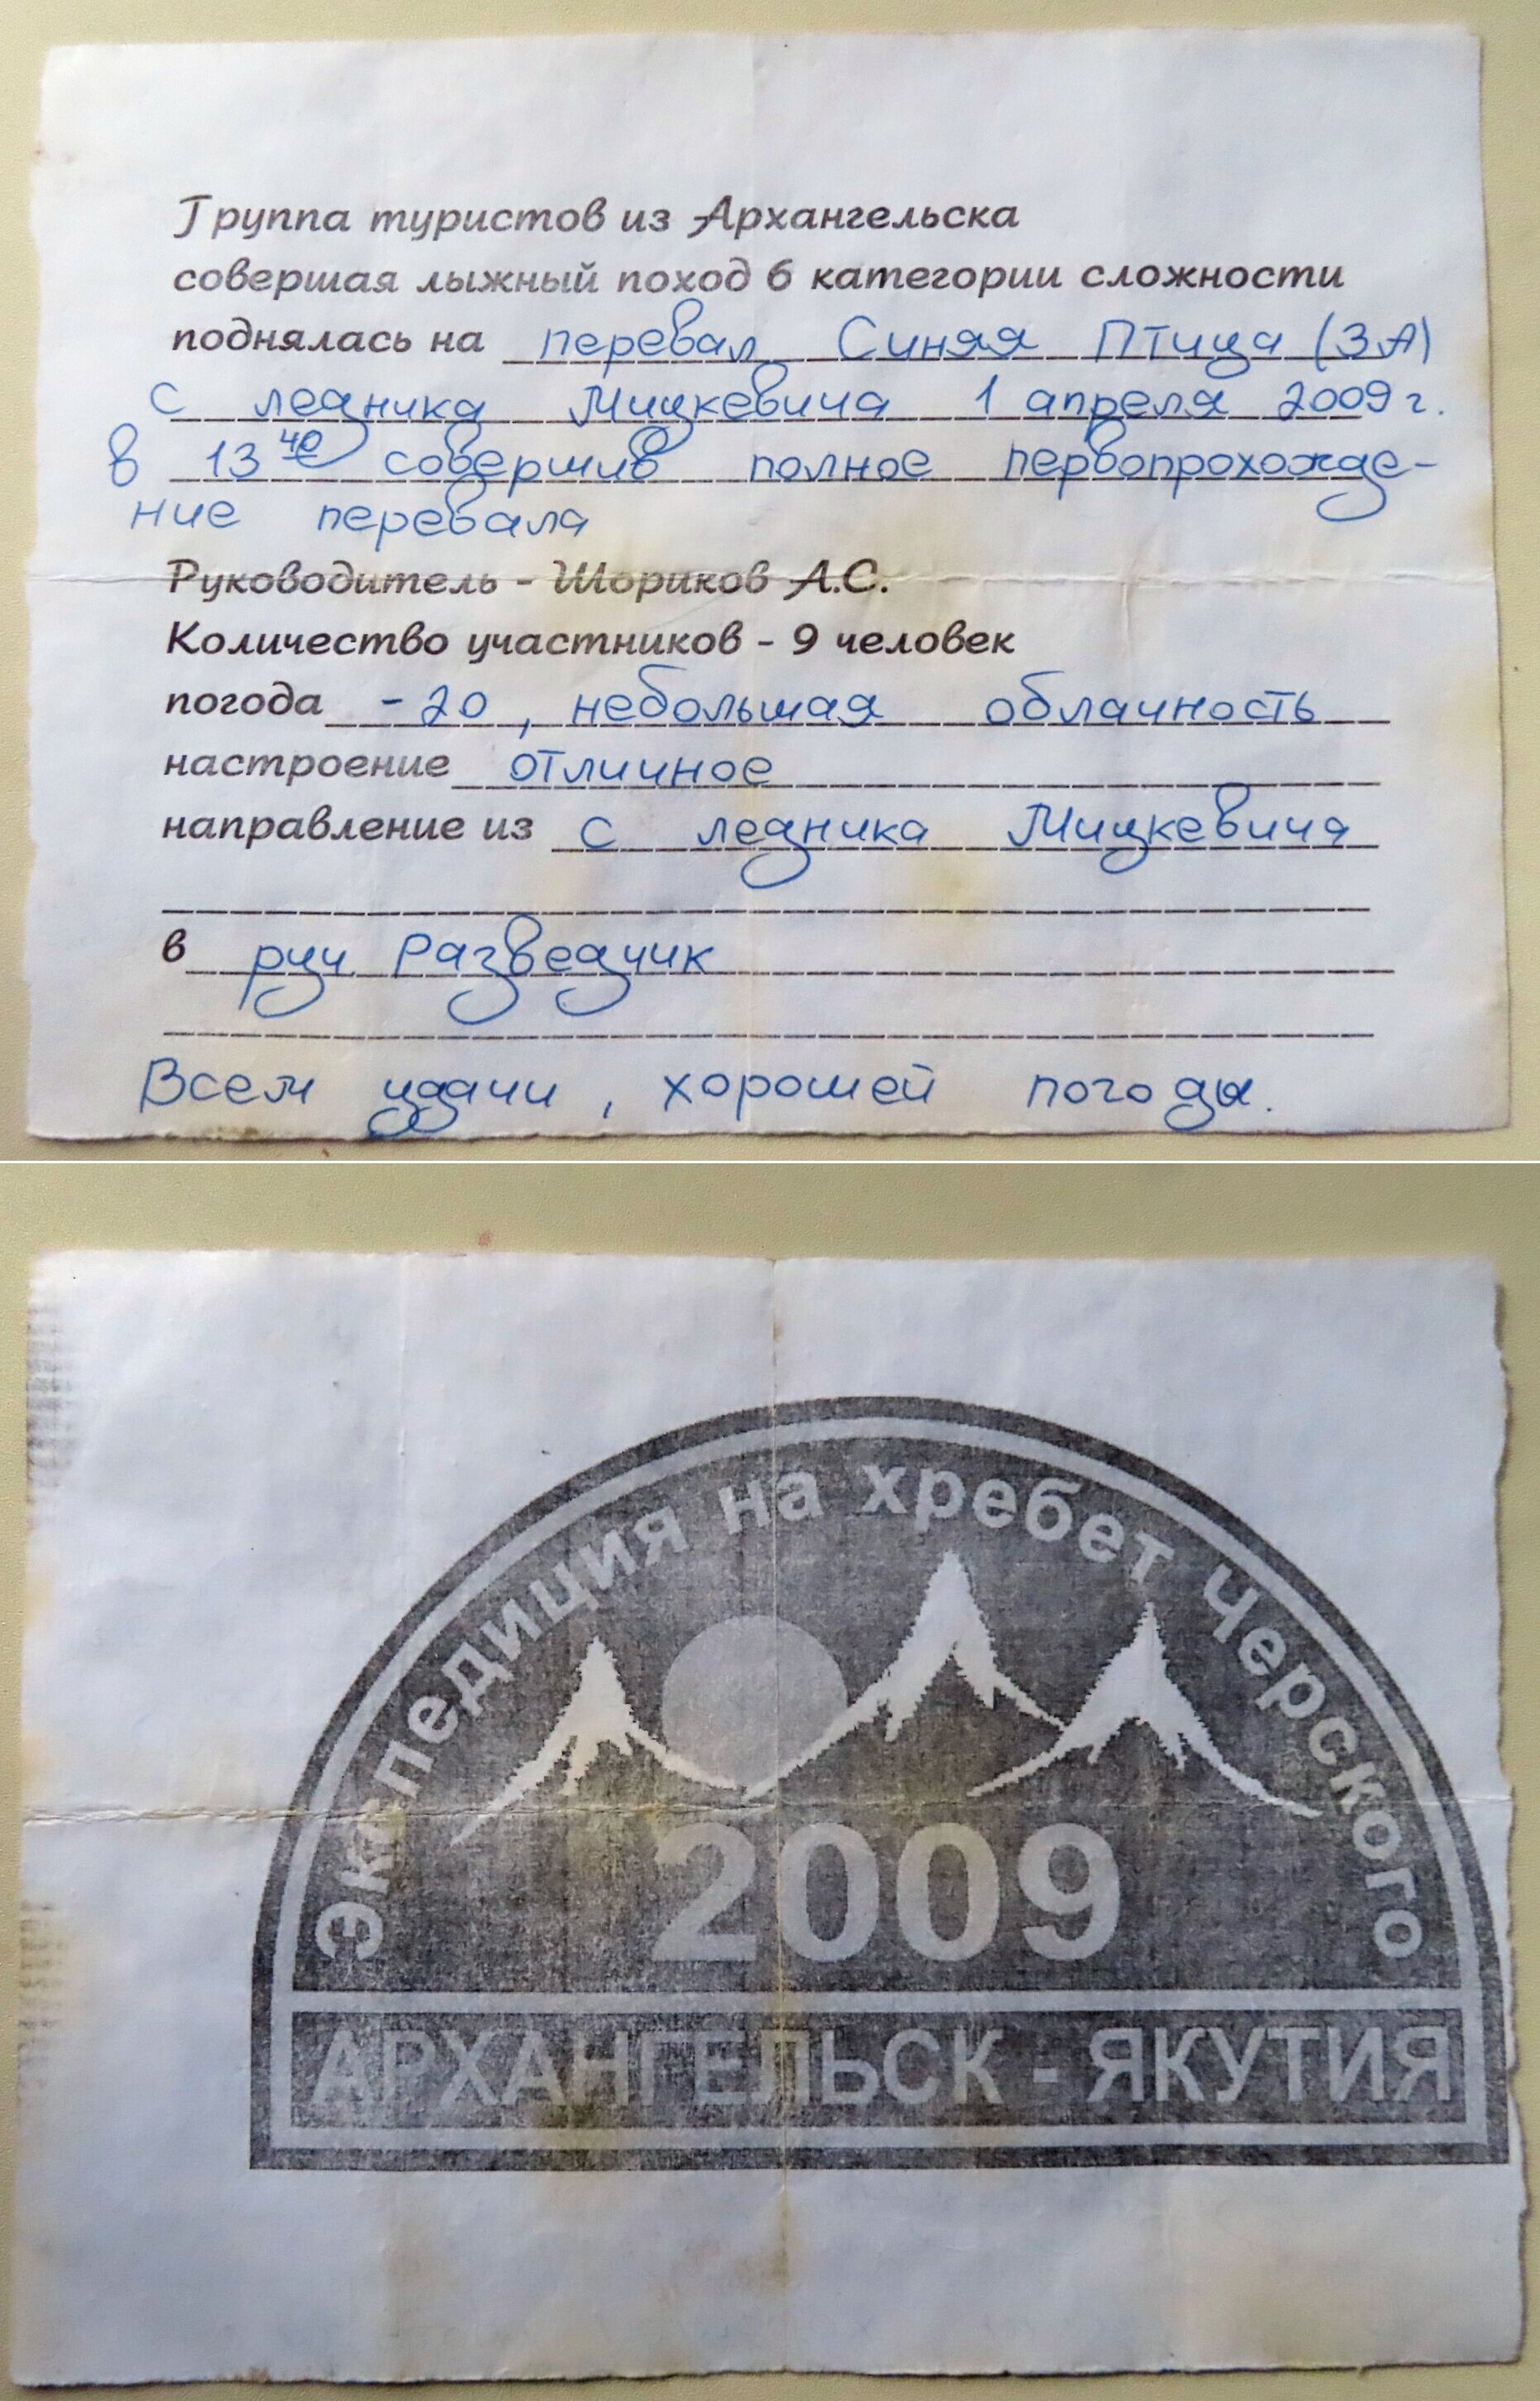 Группа туристов из Архангельска
совершая лыжный поход 6 категории сложности
поднялась на перевал Синяя Птица (3А)
с ледника Мицкевича 1 апреля 2009 г.
в 13 40 совершив полное первопрохожде-
ние перевала
Руководитель - Шориков А.С.
Количество участников - 9 человек
погода -20, небольшая облачность
настроение отличное
направление из с ледника Мицкевича
в руч. Разведчик
Всем удачи, хорошей погоды.
Экспедиция на хребет Черского
2009
АРХАНГЕЛЬСК - ЯКУТИЯ